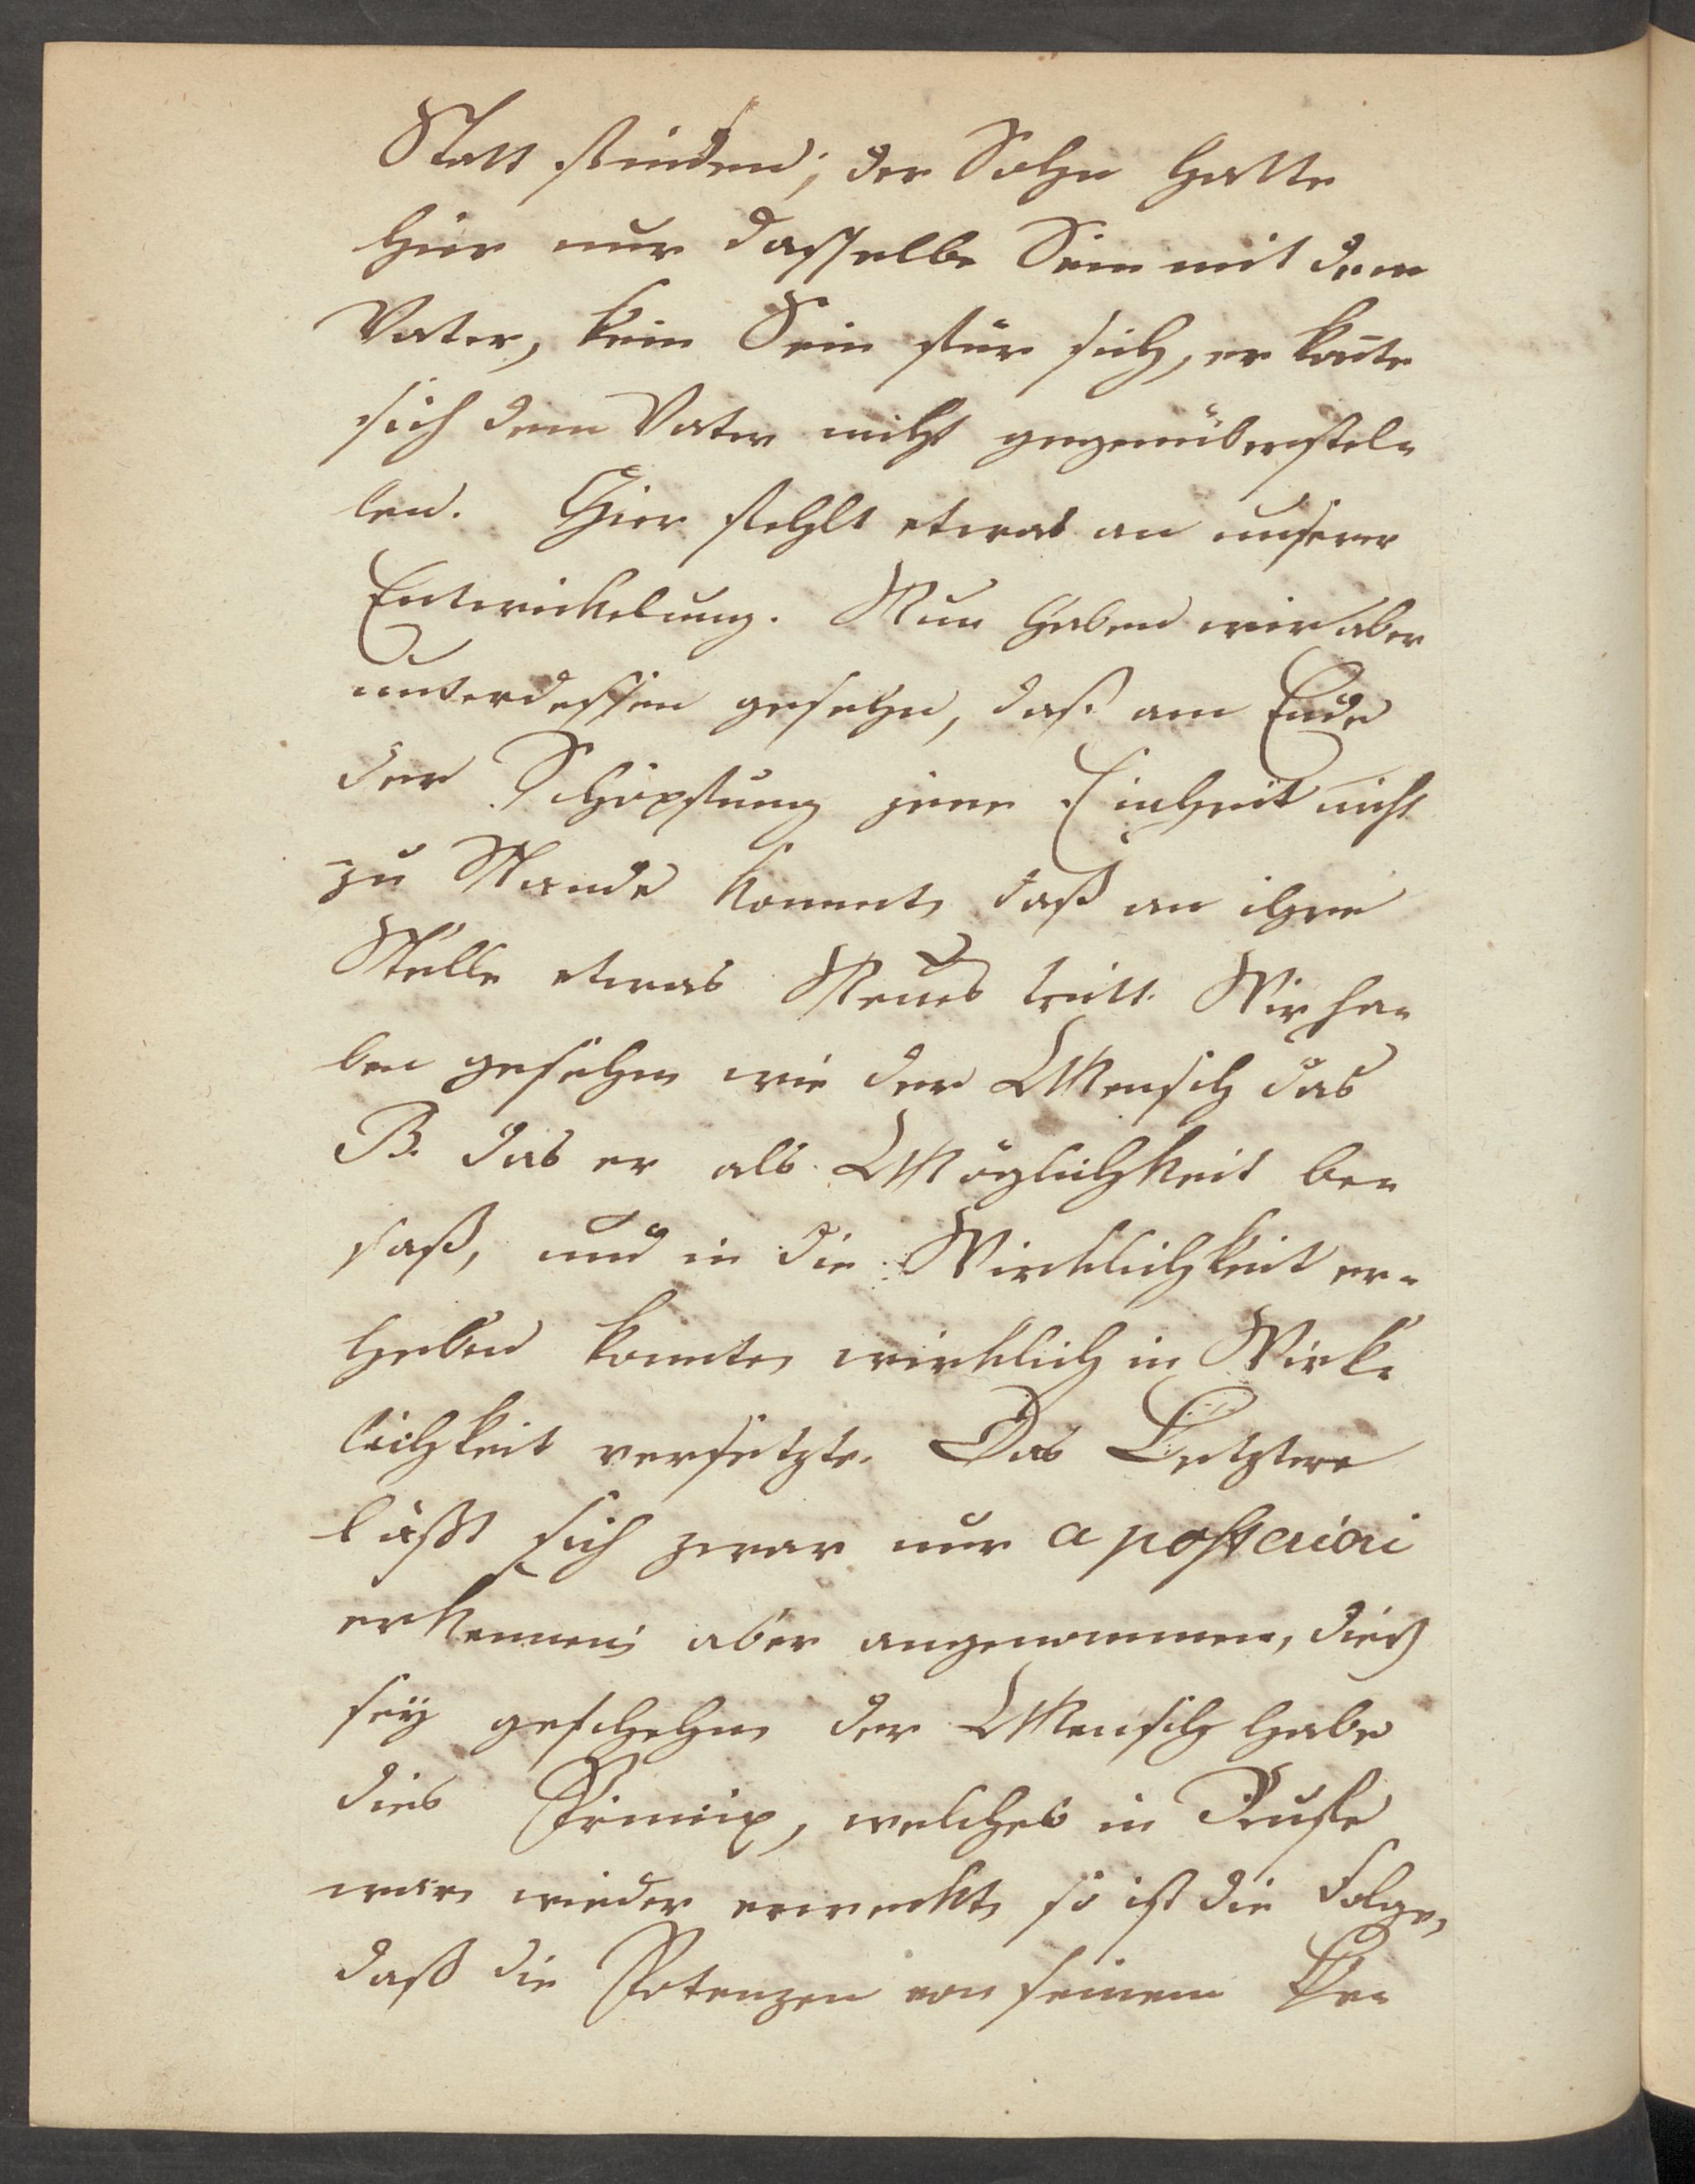 Statt finden; der Sohn hatte
hier nur dasselbe Sein mit dem
Vater, kein Sein für sich, er kon̄te
sich dem Vater nicht gegenüberstel-
len. Hier fehlt etwas an unserer
Entwickelung. Nun haben wir aber
unterdessen gesehn, daß am Ende
der Schöpfung jene Einheit nicht
zu Stande kommt, daß an ihre
Stelle etwas Neues tritt. Wir ha-
ben gesehn, wie der Mensch das
B. das er als Möglichkeit be-
saß, und in die Wirklichkeit er-
heben konnte, wirklich in Wirk-
lichkeit versetzte. Das Letztere
läßt sich zwar nur a posteriori
erkennen; aber angenommen, dieß
sey geschehn, der Mensch habe
dies Prinzip, welches in Ruhe
war, wieder erweckt, so ist die Folge,
daß die Potenzen von seinem